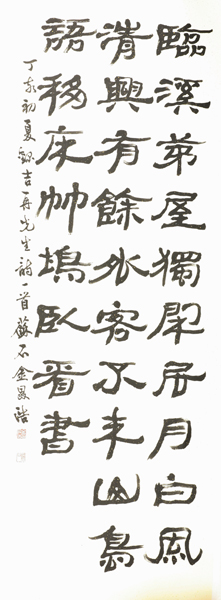 臨溪茅屋獨閑居月白風
清興有餘外客不來山鳥
語移床竹塢臥看書
丁亥初夏錄吉再先生詩一首 蘇石 金浩